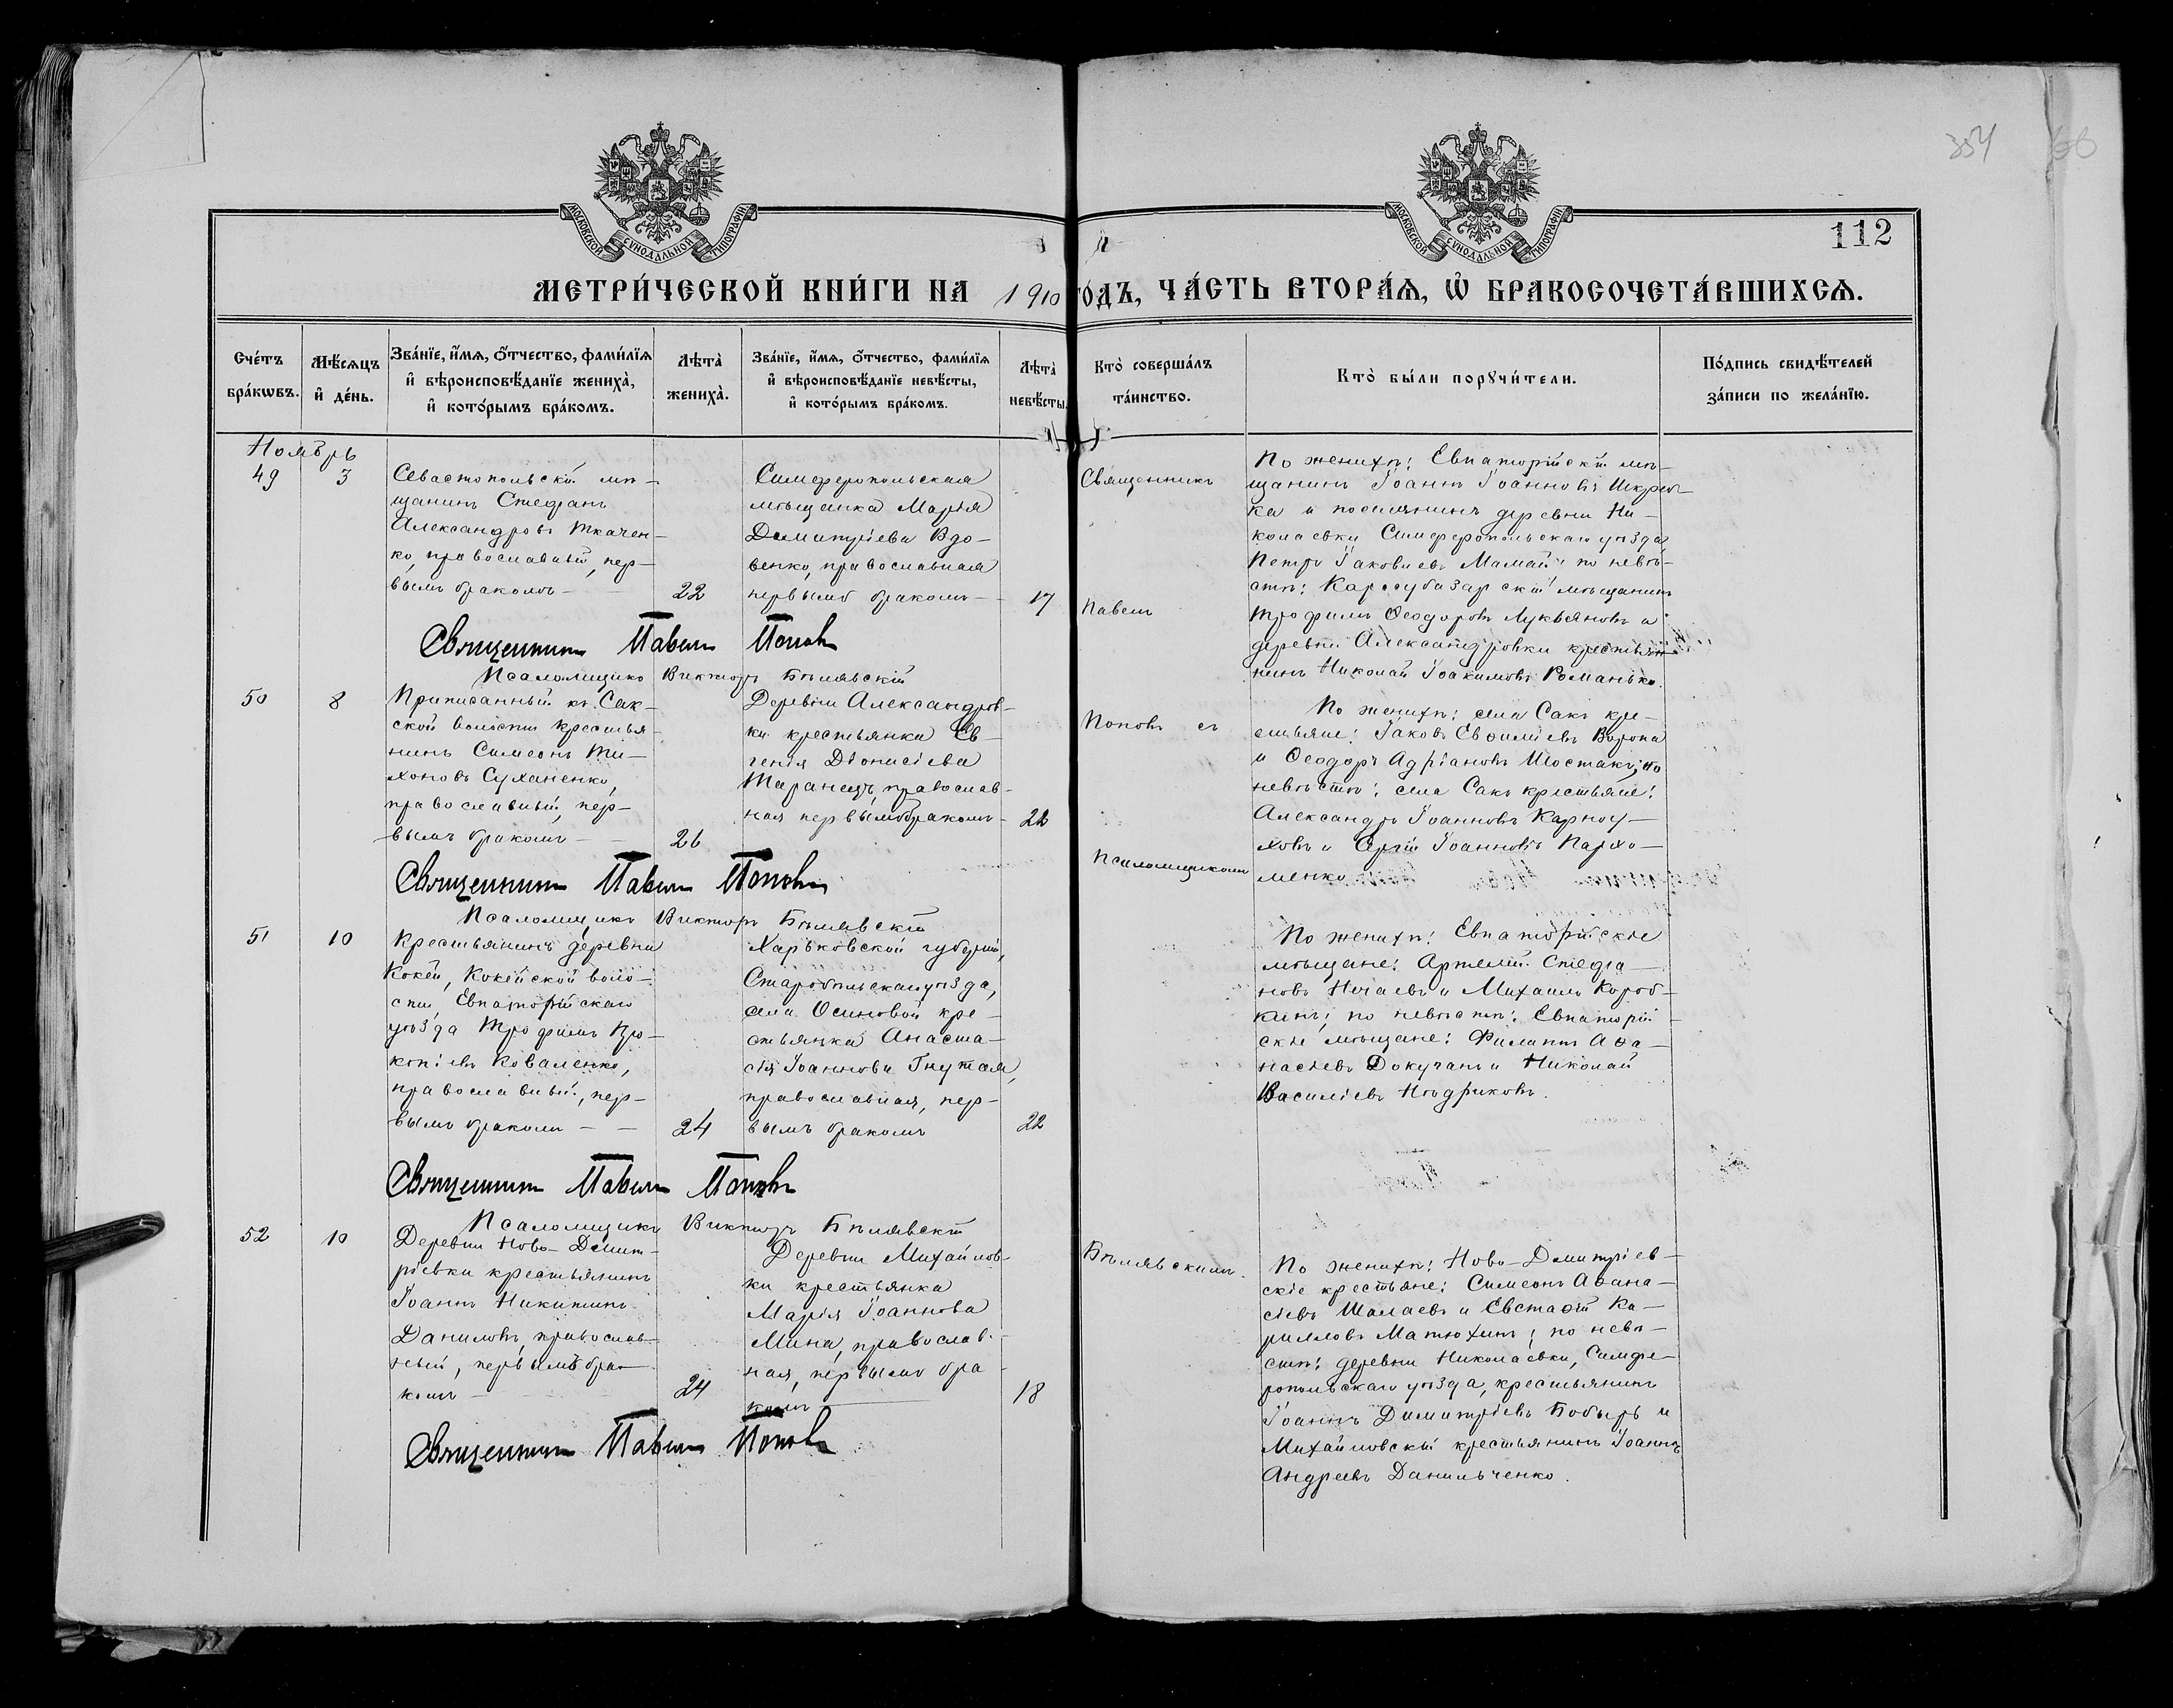 354
112
МОСКОВСКОЙ СѴНОДАЛЬНОЙ ТИПОГРАФІИ
МОСКОВСКОЙ СѴНОДАЛЬНОЙ ТИПОГРАФІИ
МЕТРИ́ЧЕСКОЙ КНИ́ГИ НА 1910 ГОДЪ, ЧА́СТЬ ВТОРА́Ѧ, Ѡ҆ БРАКОСОЧЕТА́ВШИХСѦ.
Сче́тъ бра́кѡвъ.
Мѣ́сѧцъ и҆ де́нь.
Зва́нїе, и҆́мѧ, ѻ҆́тчество, фами́лїѧ и҆ вѣроисповѣ́данїе жениха̀, и҆ кото́рымъ бра́комъ.
Лѣта̀ жениха̀.
Зва́нїе, и҆́мѧ, ѻ҆́тчество, фами́лїѧ и҆ вѣроисповѣ́данїе невѣ́сты, и҆ кото́рымъ бра́комъ.
Лѣта̀ невѣ́сты.
Кто̀ соверша́лъ та́инство.
Кто̀ бы́ли порꙋчи́тели.
По́дпись свидѣ́телей за́писи по жела́нїю.
Ноябрь
49
3
Севастопольскій мѣ-
щанинъ Стефанъ
Александровъ Ткачен-
ко, православный, пер-
вымъ бракомъ —
22
Симферопольская
мѣщанка Марія
Димитріева Вдо-
венко, православная
первымъ бракомъ —
17
Священникъ
Павелъ
По женихѣ: Евпаторійскій мѣ-
щанинъ Іоаннъ Іоанновъ
ка и поселянинъ деревни Ни-
колаевки Симферопольскаго уѣзда
Петръ Іаковлевъ Мамай; по невѣ-
стѣ: Карасубазарскій мѣщанинъ
Трофимъ Ѳеодоровъ Лукьяновъ и
деревни Александровки крестья-
нинъ Николай Іоакимовъ Романько.
Священникъ Павелъ Поповъ
Псаломщикъ Викторъ Бѣлявскій
50
8
Приписанный къ Сак-
ской волости крестья-
нинъ Симеонъ Ти-
хоновъ Суханенко,
православный, пер-
вымъ бракомъ —
26
Деревни Александров-
ки крестьянка Ев-
генія Діонисіева
Таранецъ, православ-
ная первымъ бракомъ —
22
Поповъ съ
Псаломщикомъ
По женихѣ: села Сакъ кре-
стьяне: Іаковъ Евѳиміевъ Ворона
и Ѳеодоръ Адріановъ Шостакъ; по
невѣстѣ: села Сакъ крестьяне:
Александръ Іоанновъ Карноу-
ховъ и Сергій Іоанновъ Пархо-
менко
Священникъ Павелъ Поповъ
Псаломщикъ Викторъ Бѣлявскій
51
10
Крестьянинъ деревни
Кокей, Кокейской воло-
сти, Евпаторійскаго
уѣзда Трофимъ Про-
копіевъ Коваленко,
православный, пер-
вымъ бракомъ — —
24
Харьковской губерніи,
Старобѣльскаго уѣзда,
села Осиновой кре-
стьянка Анаста-
сія Іоаннова Гнутая,
православная, пер-
вымъ бракомъ
22
По женихѣ: Евпаторійскіе
мѣщане: Артемій Стефа-
новъ Нечаевъ и Михаилъ Короб-
кинъ; по невѣстѣ: Евпаторій-
скіе мѣщане: Филиппъ Аѳа-
насіевъ Докучанъ и Николай
Василіевъ Нѣдриковъ.
Священникъ Павелъ Поповъ
Псаломщикъ Викторъ Бѣлявскій
52
10
Деревни Ново-Димит-
ріевки крестьянинъ
Іоаннъ Никитинъ
Даниловъ, православ-
ный, первымъ бра-
комъ —
24
Деревни Михайлов-
ки крестьянка
Марія Іоаннова
Мина, православ-
ная, первымъ бра-
комъ —
18
Бѣлявскимъ.
По женихѣ: Ново-Димитріев-
скіе крестьяне: Симеонъ Аѳана-
сіевъ Шалаевъ и Евстаѳій Ки-
рилловъ Матюхинъ; по невѣ-
стѣ: деревни Николаевки, Симфе-
ропольскаго уѣзда, крестьянинъ
Іоаннъ Димитріевъ Бобырь и
Михайловскій крестьянинъ Іоаннъ
Андреевъ Данильченко.
Священникъ Павелъ Поповъ